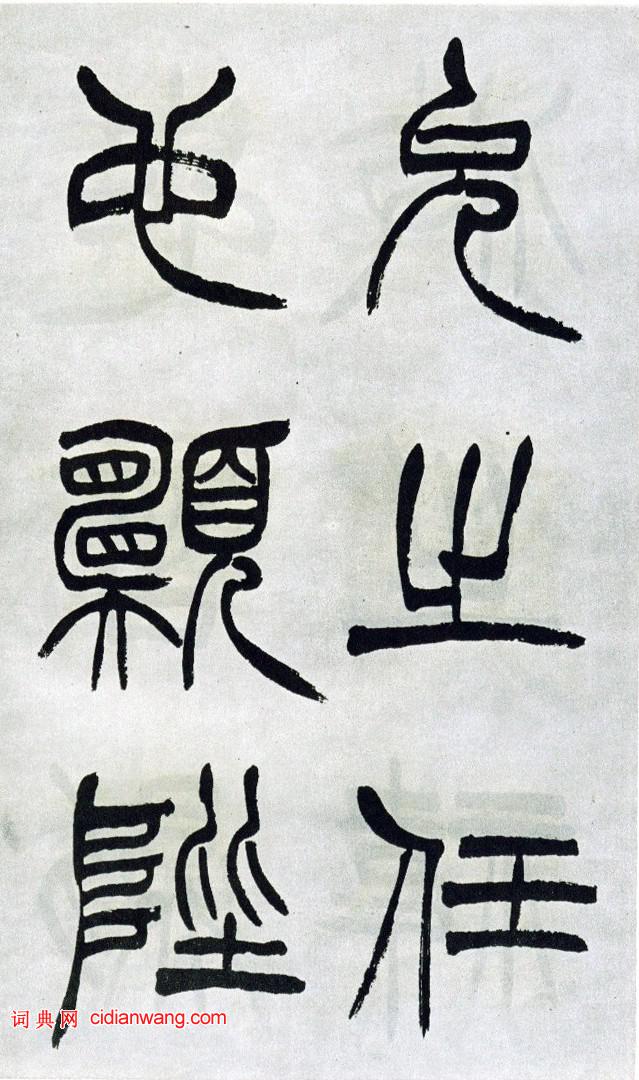 允之任
也願陛
词典网 cidianwang.com